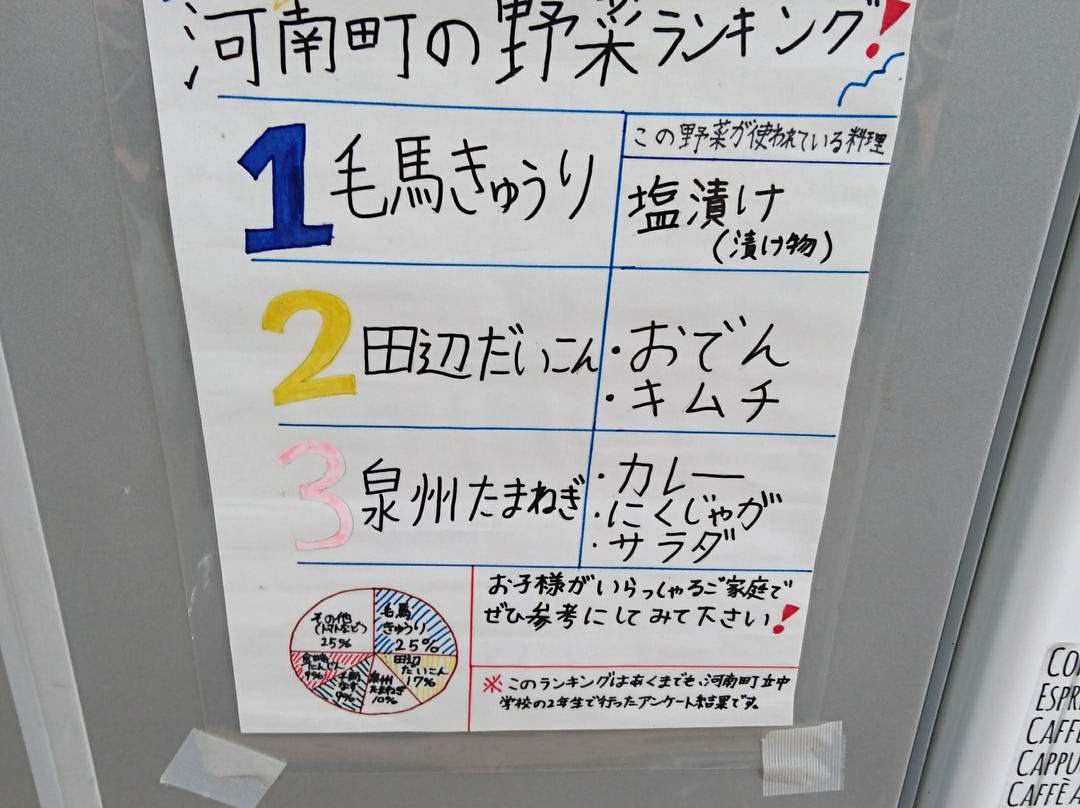 河南町の野菜ランキング!
この野菜が使われている料理
1 毛馬きゅうり
塩漬け
(漬け物)
2 田辺だいこん
・おでん
・キムチ
3 泉州たまねぎ
・カレー
・にくじゃが
・サラダ
お子様がいらっしゃるご家庭で
ぜひ参考にしてみて下さい!
※このランキングはあくまでも、河南町立中
学校の2年生で行ったアンケート結果です。
毛馬
きゅうり
25%
田辺
だいこん
17%
泉州
たまねぎ
10%
なす
9%
にんじん
9%
その他
(トマトなど)
25%
ESPR
CAFF
CAPPU
CAFFÈ A